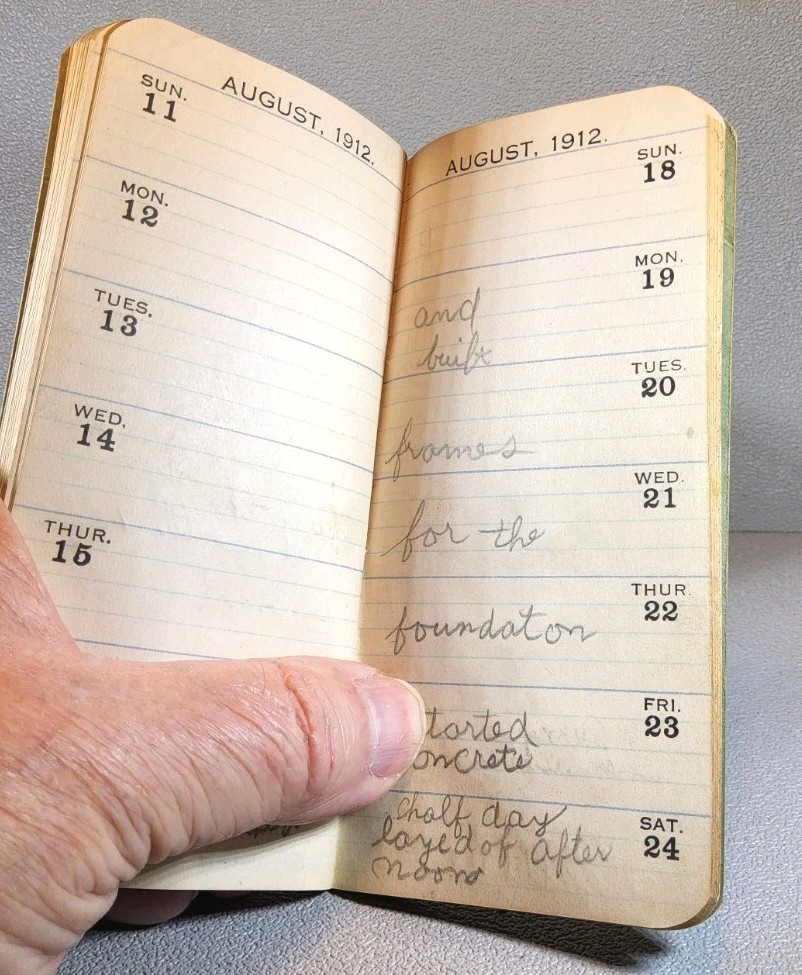 AUGUST, 1912.
SUN.
11
MON.
12
TUES.
13
WED.
14
THUR.
15
AUGUST, 1912.
SUN.
18
MON.
19
and
built
TUES.
20
frames
WED.
21
for the
THUR.
22
foundaton
FRI.
23
tarted
oncrete
SAT.
24
half day
layed of after
noon